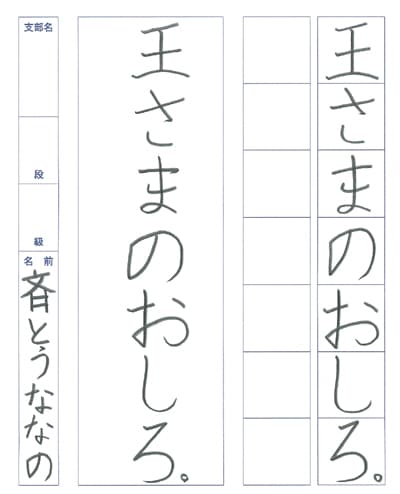 王さまのおしろ。
王さまのおしろ。
支部名
段
級
名前
斉とうななの